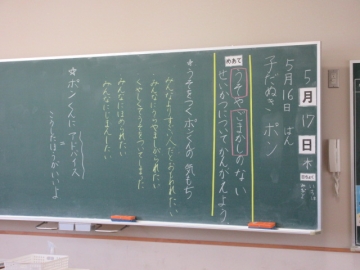 5月17日木
5月16日 ばん
子だぬき ポン
めあて
うそやごまかしのない
せいかつについてかんがえよう
☆うそをつくポンくんの気もち
みんなよりすごい人だとおもわれたい
みんなにうらやましがられたい
くやしくてうそをついてしまった
みんなにほめられたい
みんなにじまんしたい
☆ポンくんにアドバイス
こうしたほうがいいよ